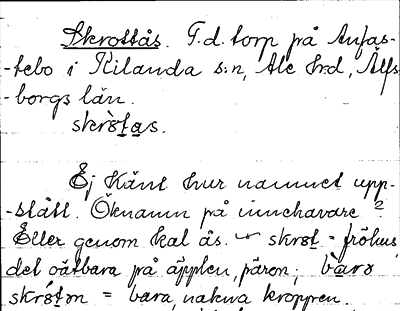 Skrottås. F.d. torp på Anfas-
-tebo i Kilanda s:n, Ale hrd, Älfs
-borgs län.
skrò̀tas.
Ej känt hur namnet upp-
-stått. Öknamn på innehavare?
Eller genom kal ås. skrot = fröhus,
det oätbara på äpplen, päron; bara
skrótən = bara, nakna kroppen.